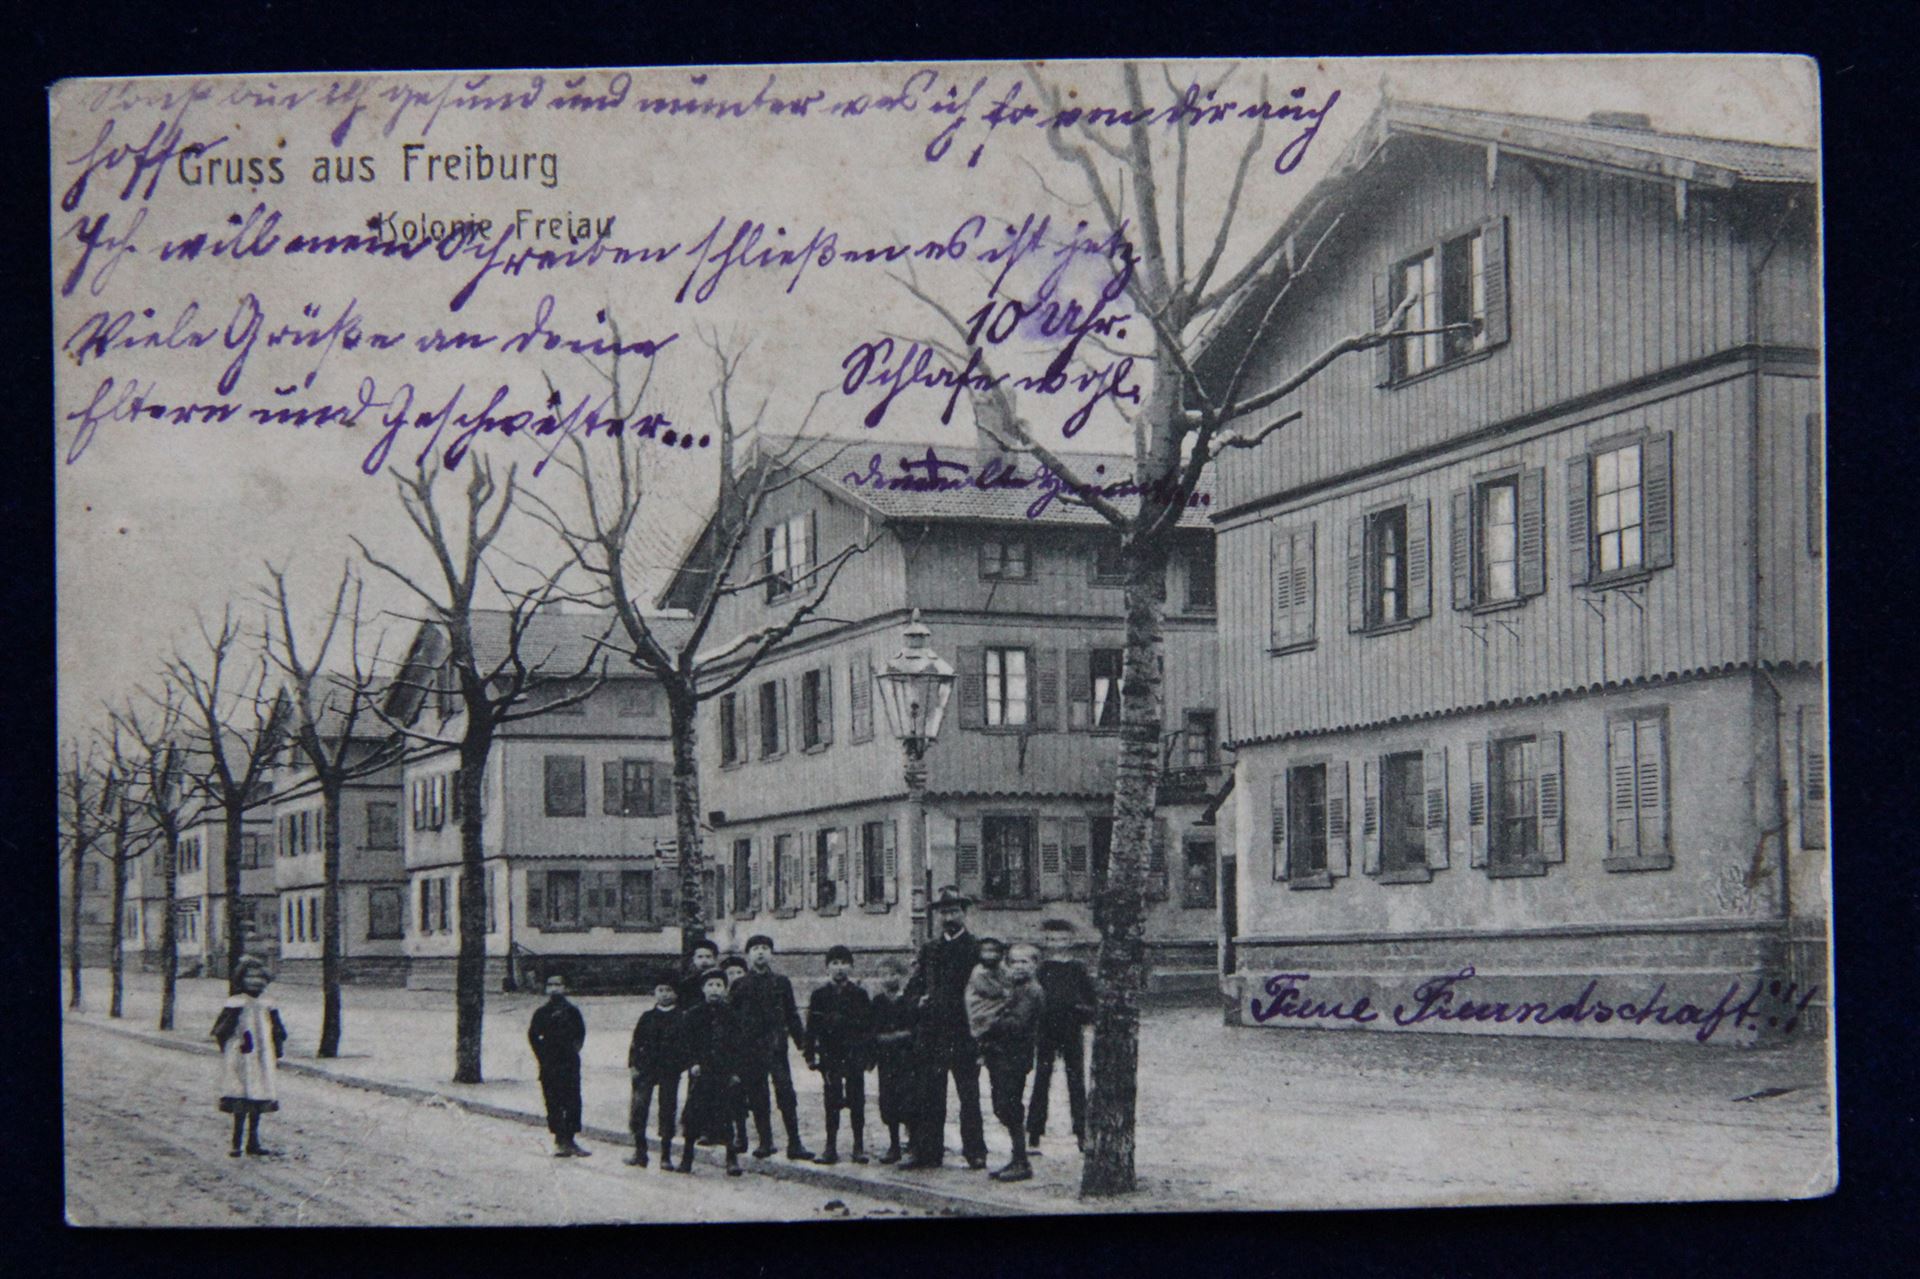 Sonst bin ich gesund und munter was ich ja von dir auch
hoffe
Gruss aus Freiburg
Kolonie Freiau
Ich will mein Schreiben schließen es ist jetz
10 Uhr.
Viele Grüße an deine
Schlafe wohl.
Eltern und Geschwister...
Treue Freundschaft!!!